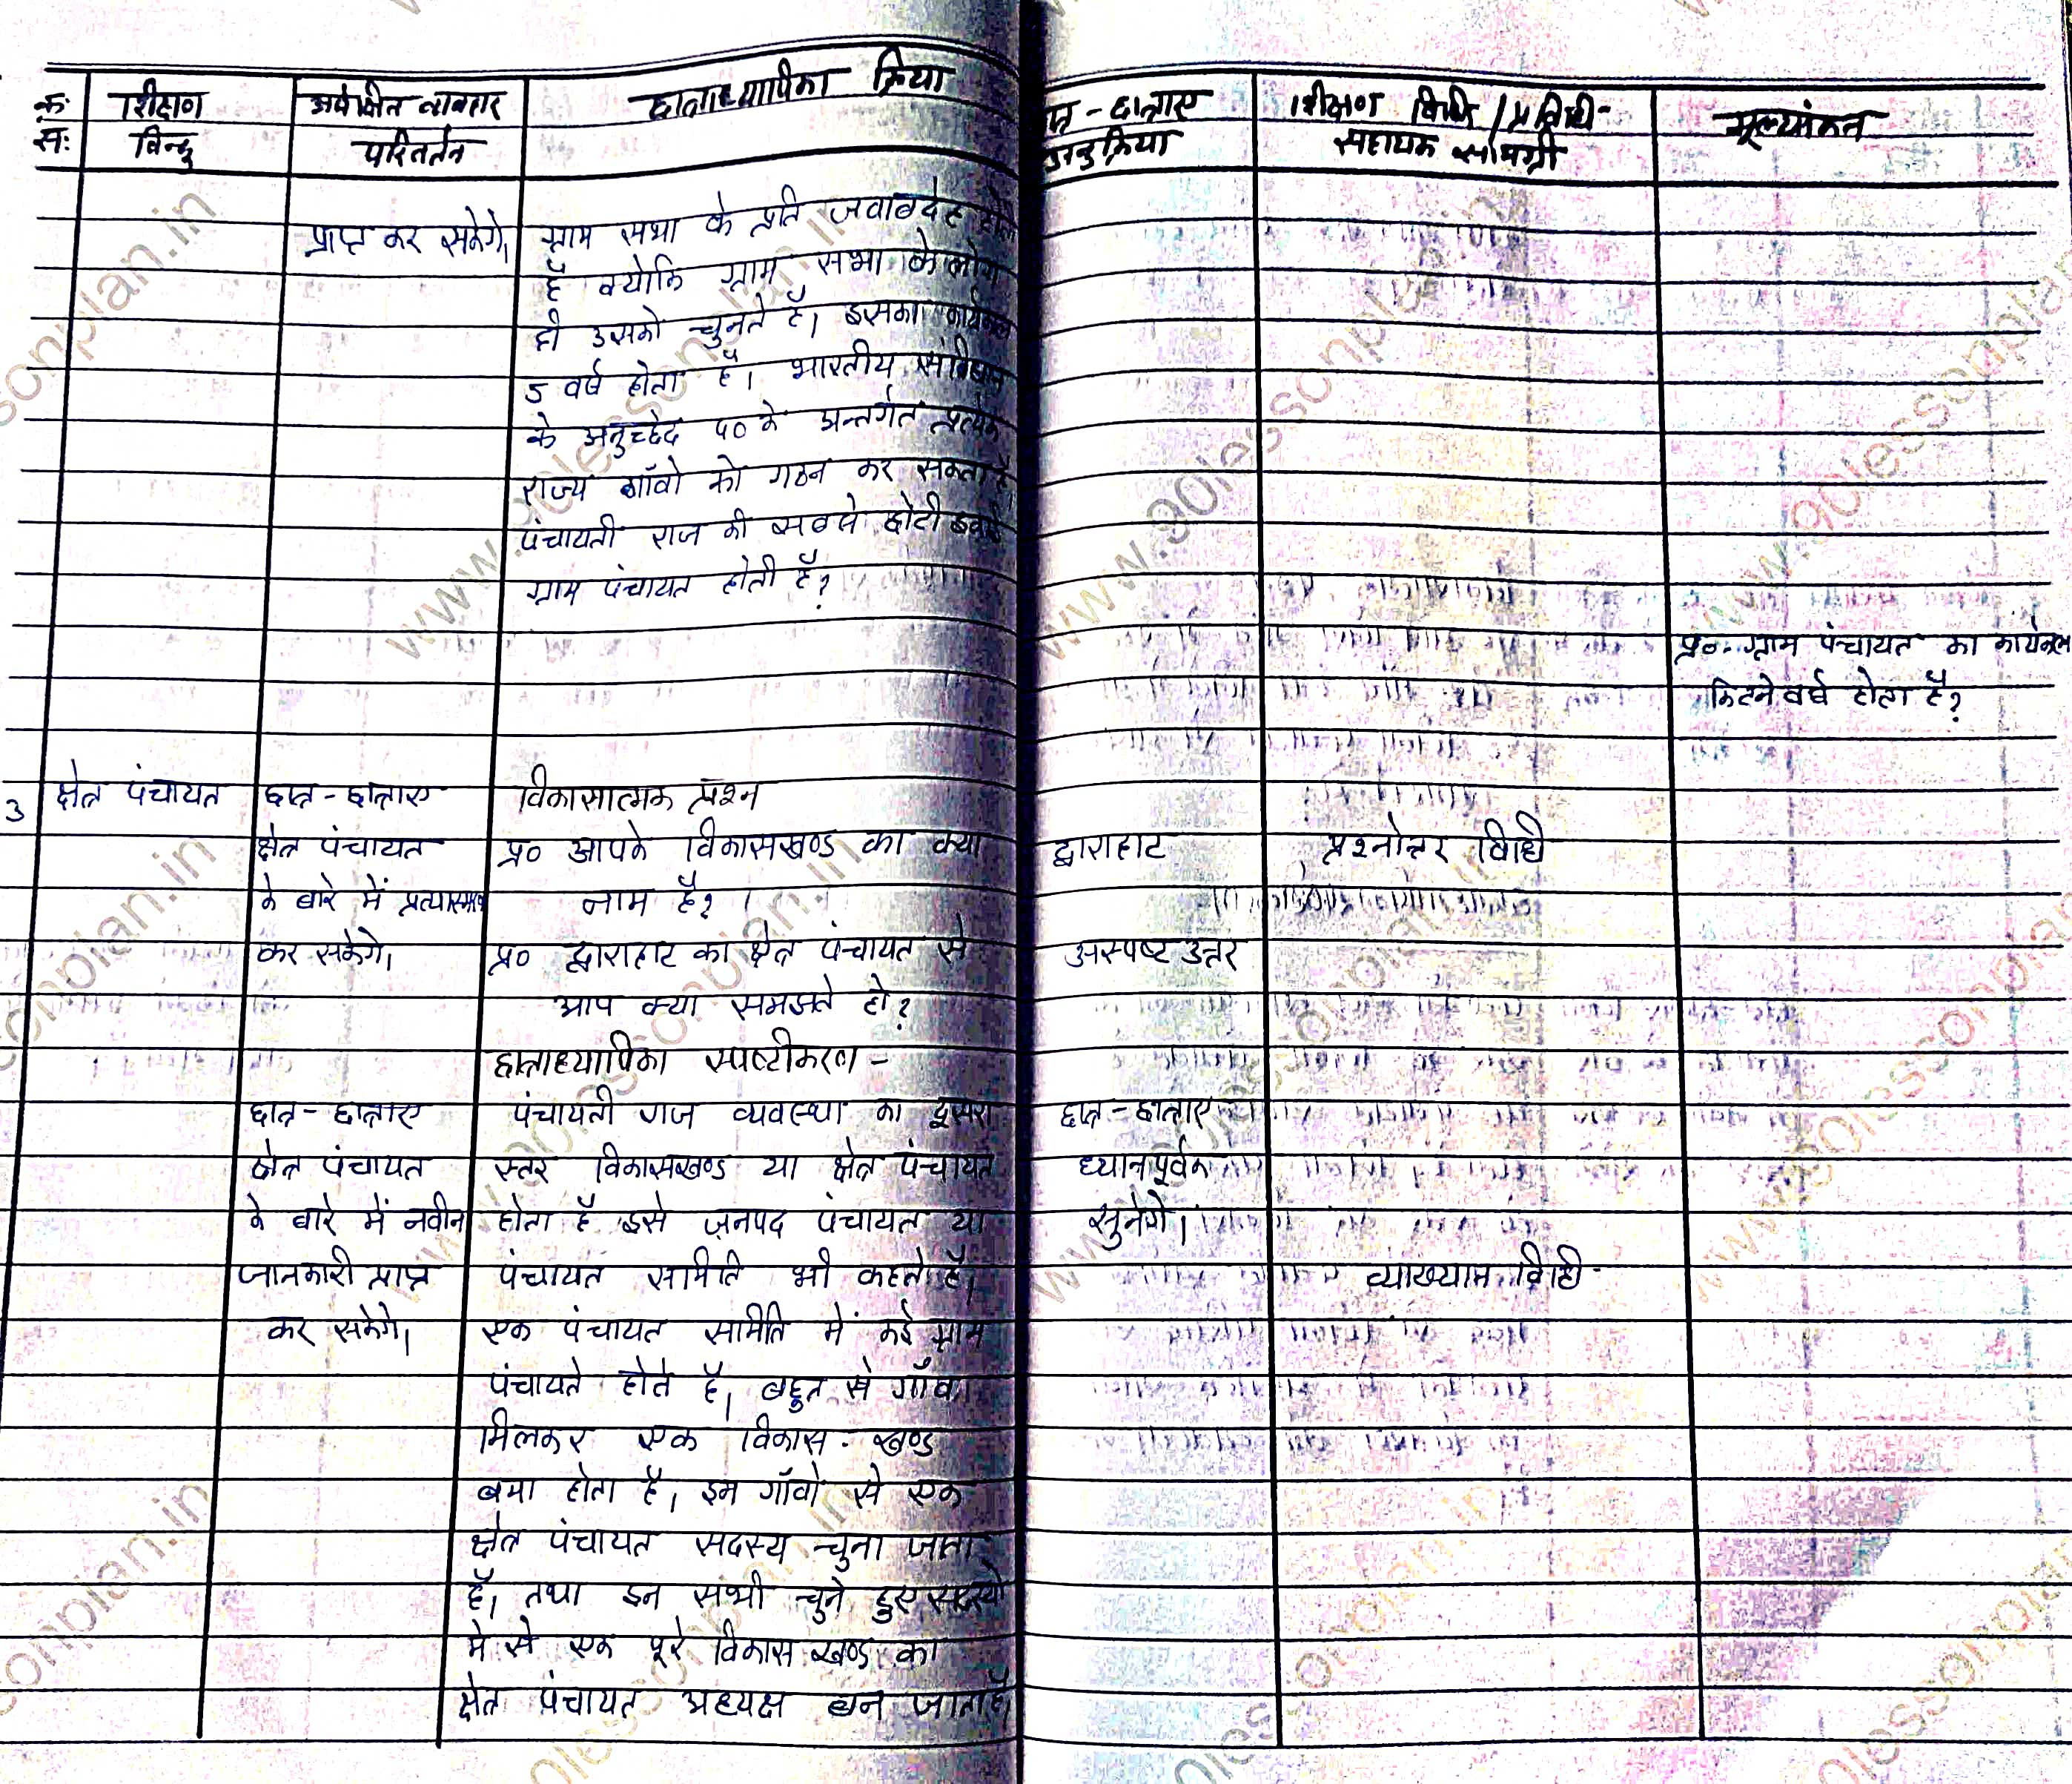 क्र॰ शिक्षण अपेक्षित व्यवहार छात्राध्यापिका क्रिया
स॰ बिन्दु परिवर्तन
प्राप्त कर सकेगे।
ग्राम सभा के प्रति जवाबदेह होती
है क्योकि ग्राम सभा के लोग
ही उसको चुनते है। इसका कार्यकाल
5 वर्ष होता है। भारतीय संविधान
के अनुच्छेद 40 के अन्तर्गत प्रत्येक
राज्य गाँवो को गठन कर सकता है।
पंचायती राज की सबसे छोटी इकाई
ग्राम पंचायत होती है?
3 क्षेत्र पंचायत
छात्र-छात्राए
क्षेत्र पंचायत
के बारे में प्रत्यास्मरण
कर सकेगे।
विकासात्मक प्रश्न
प्र० आपके विकासखण्ड का क्या
नाम है?
प्र० द्वाराहाट का क्षेत्र पंचायत से
आप क्या समझते हो?
छात्राध्यापिका स्पष्टीकरण -
छात्र-छात्राए
क्षेत्र पंचायत
के बारे में नवीन
जानकारी प्राप्त
कर सकेगे।
पंचायती राज व्यवस्था का दूसरा
स्तर विकासखण्ड या क्षेत्र पंचायत
होता है इसे जनपद पंचायत या
पंचायत समिति भी कहते है।
एक पंचायत समिति में कई ग्राम
पंचायते होते है। बहुत से गाँव
मिलकर एक विकास-खण्ड
बना होता है। इन गाँवो से एक
क्षेत्र पंचायत सदस्य चुना जाता
है। तथा इन सभी चुने हुए सदस्यो
मे से एक पूरे विकास खण्ड का
क्षेत्र पंचायत अध्यक्ष बन जाता है
त्र-छात्राए शिक्षण विधि/प्रविधी- मूल्यांकन
अनुक्रिया सहायक सामग्री
प्र०- ग्राम पंचायत का कार्यकाल
कितने वर्ष होता है?
द्वाराहाट प्रश्नोत्तर विधि
अस्पष्ट उत्तर
छात्र-छात्राए
ध्यानपूर्वक
सुनेगे।
व्याख्यान विधि
www.90lessonplan.in